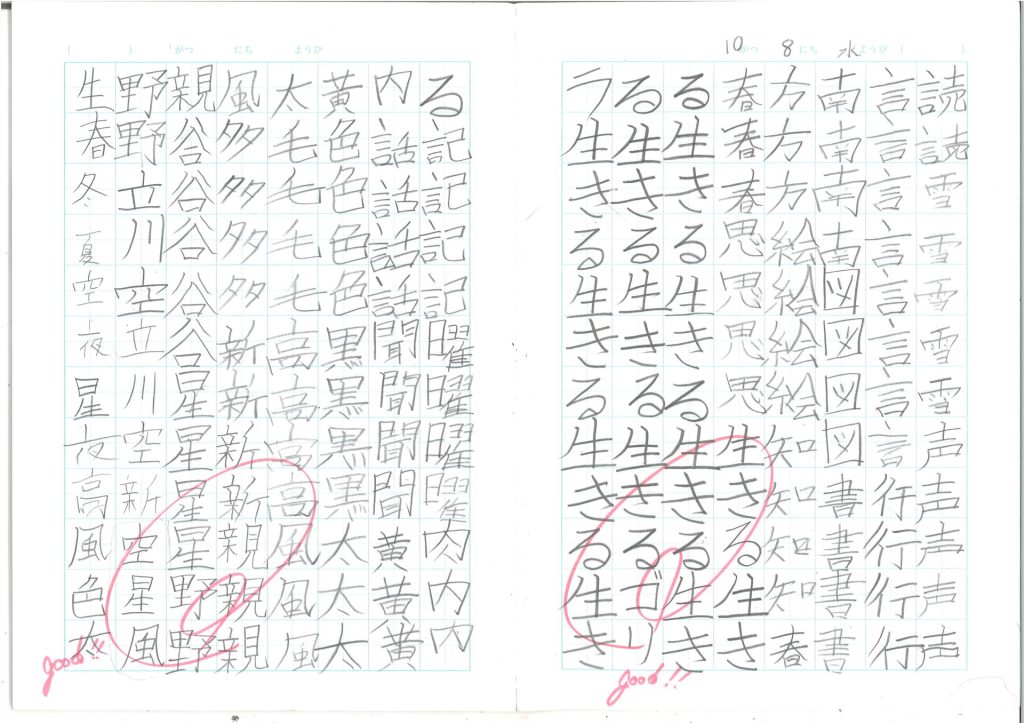 10がつ 8にち 水ようび ( )
読読雪雪雪雪雪声声声声声
言言言言言言言言行行行行
南南南南図図図図書書書書
方方方絵絵絵絵知知知知春
春春春思思思思生きる生き
る生きる生きる生きる生き
る生きる生きる生きるゴリ
ラ生きる生きる生きる生き
good!!
( ) がつ にち ようび
る記記記記曜曜曜曜肉内内
内話話話話聞聞聞聞黄黄黄
黄色色色色黒黒黒黒太太太
太毛毛毛毛高高高高風風風
風多多多多新新新新親親親
親谷谷谷谷谷星星星星野野
野野立川空立川空新空星風
生春冬夏空夜星夜高風色冬
good!!